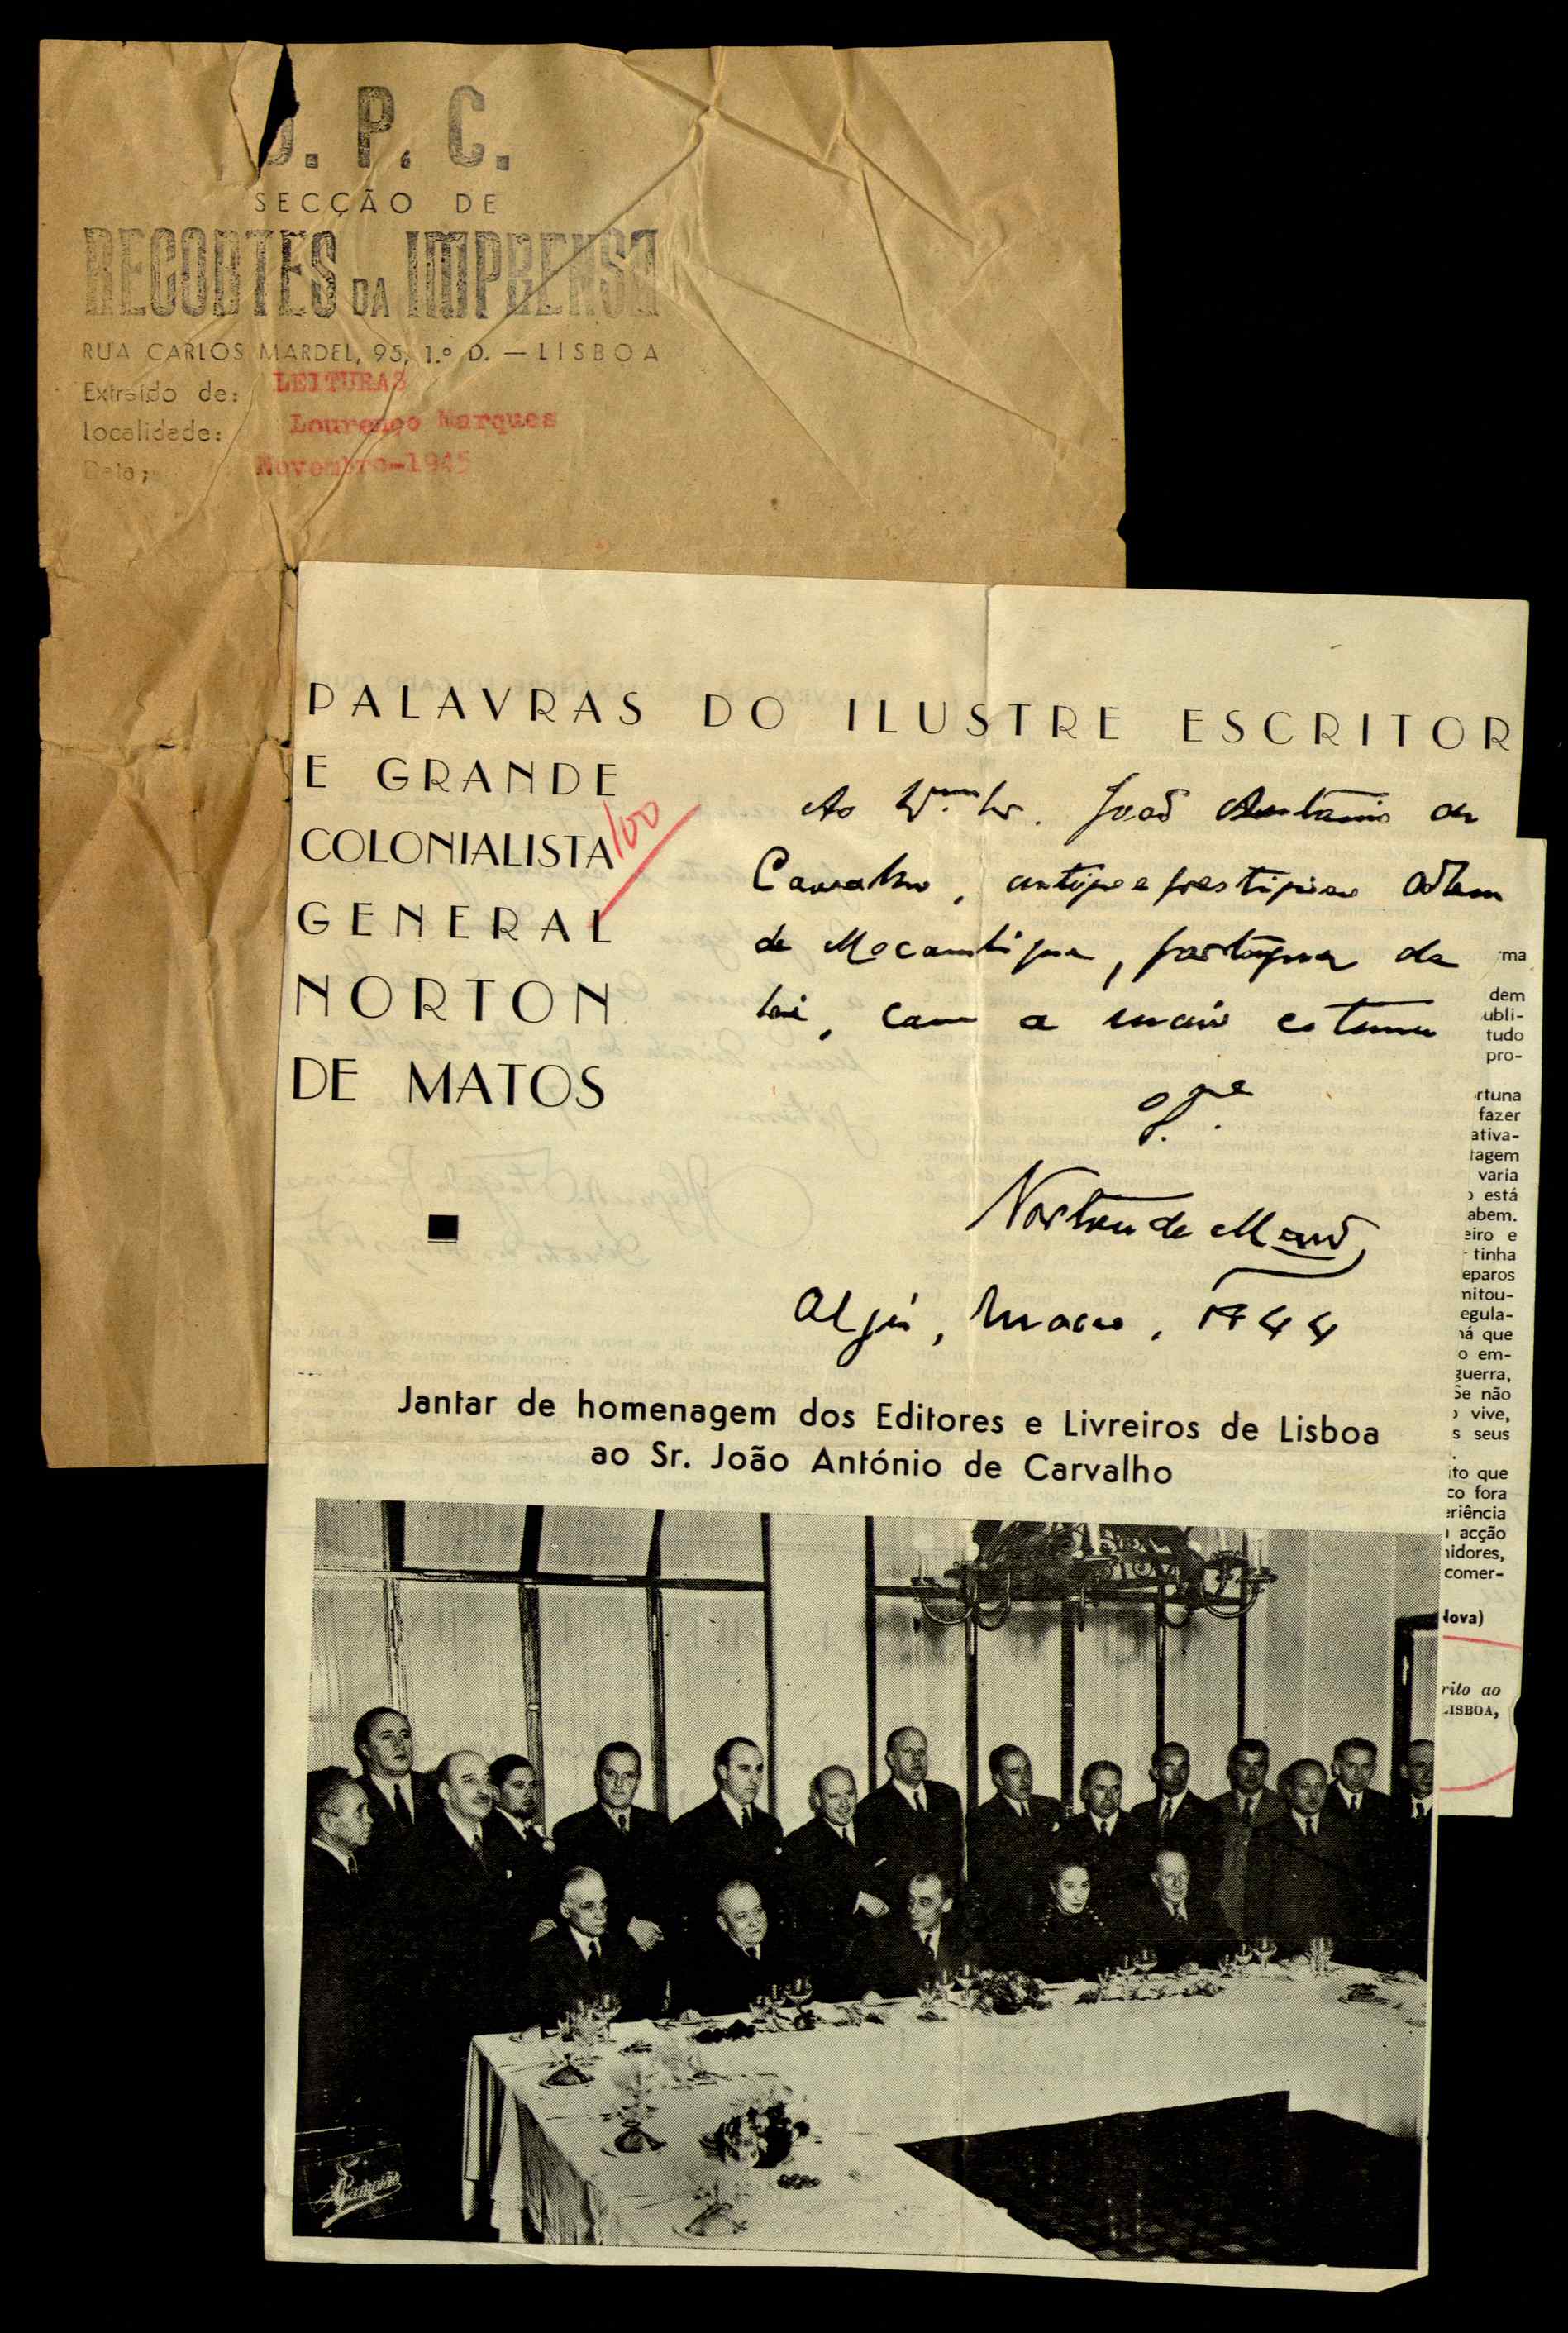 . P. C.
SECÇÃO DE
RECORTES DA IMPRENSA
RUA CARLOS MARDEL, 95, 1.º D. — LISBOA
Extraído de: LEITURAS
Localidade: Lourenço Marques
Data; Novembro-1945
PALAVRAS DO ILUSTRE ESCRITOR
E GRANDE
COLONIALISTA
GENERAL
NORTON
DE MATOS
100
Ao João António de
Carvalho,
de Moçambique, da
lei, com a maior estima
Norton de Matos
Algés, Março, 1944
Jantar de homenagem dos Editores e Livreiros de Lisboa
ao Sr. João António de Carvalho
ma
dem
ubli-
tudo
pro-
rtuna
fazer
ativa-
tagem
varia
o está
abem.
eiro e
tinha
eparos
mitou-
egula-
há que
o em-
guerra,
Se não
o vive,
s seus
ito que
co fora
eriência
acção
nidores,
comer-
Nova)
rito ao
LISBOA,